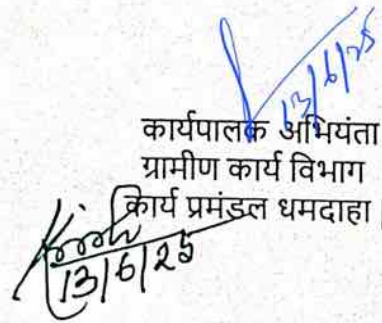 13/6/25
कार्यपालक अभियंता
ग्रामीण कार्य विभाग
कार्य प्रमंडल धमदाहा
13/6/25